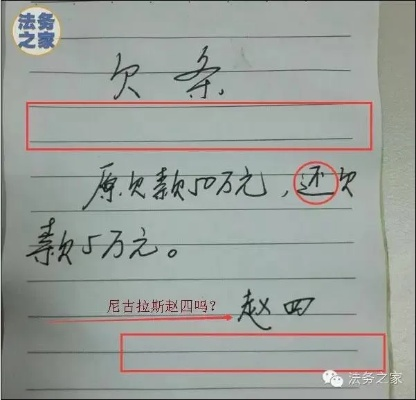 法务
之家
欠条
原欠款50万元，还欠
款5万元。
尼古拉斯赵四吗？
赵四
法务之家